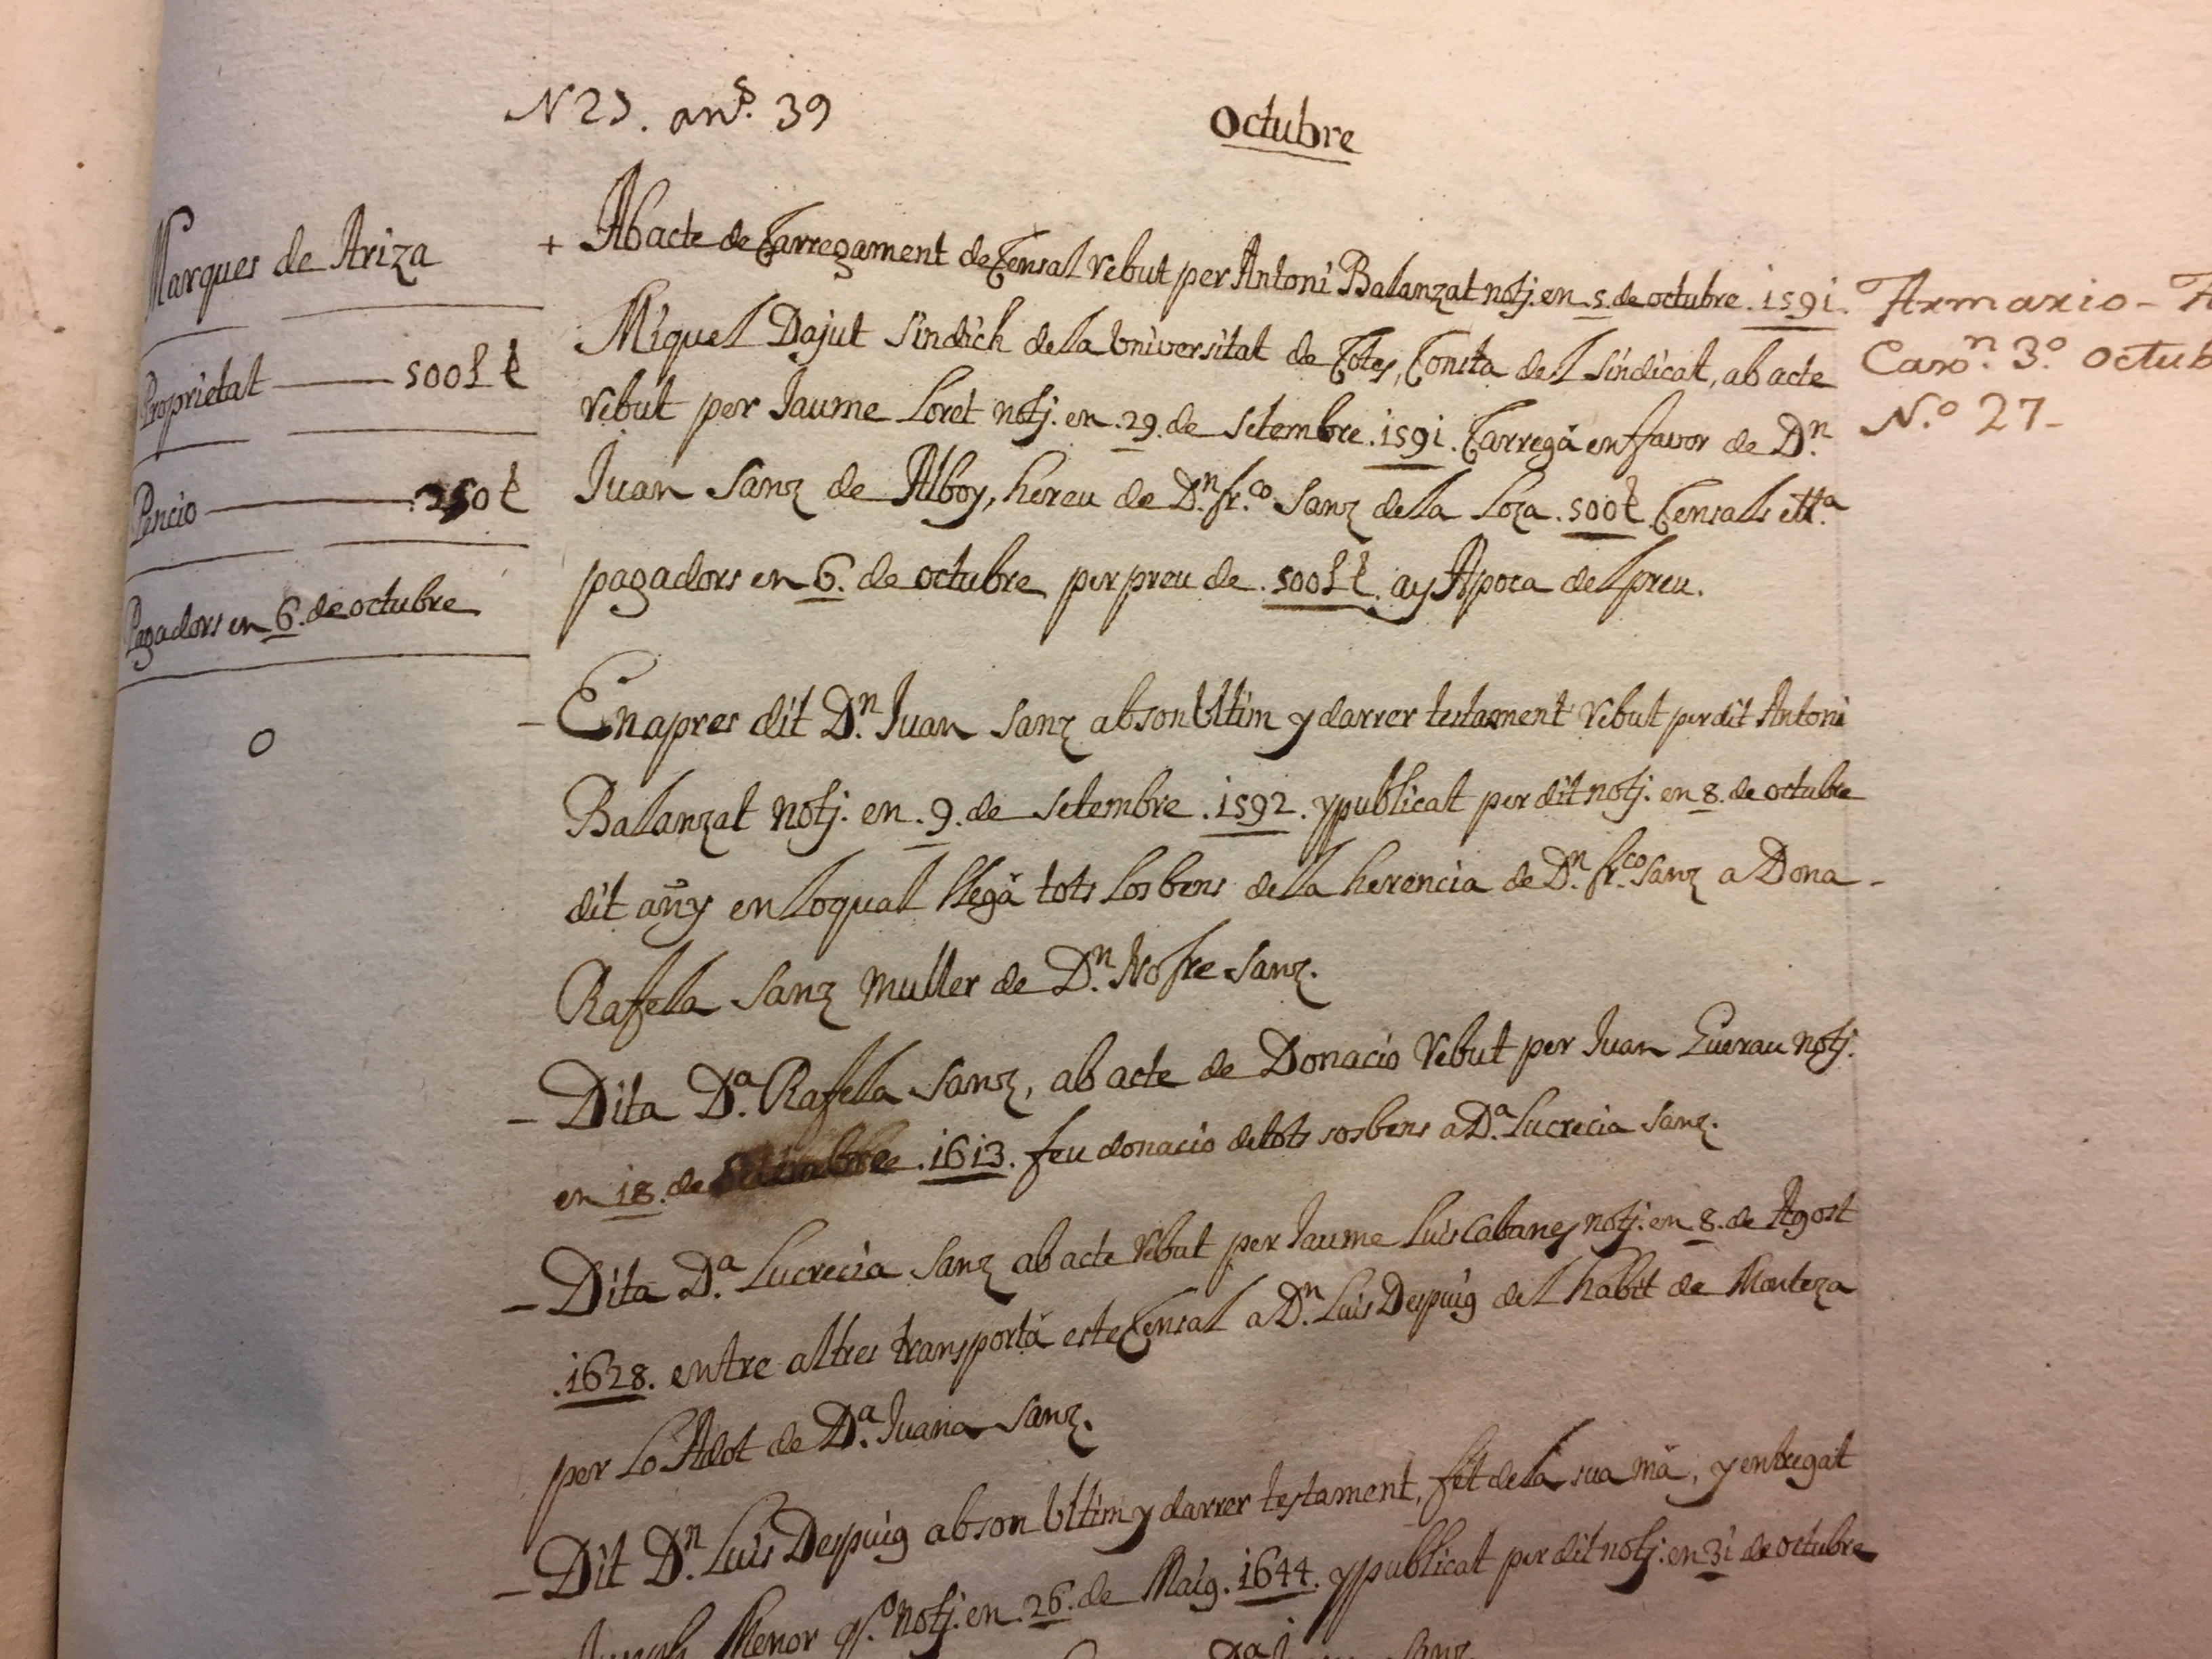 N 25. an.s 39
Octubre
Marques de Ariza
Proprietat 500 L t
Pencio 250 t
Pagadors en 6. de octubre
0
+ Ab acte de Carregament de Censal rebut per Antoni Balanzat notj. en 5. de octubre. 1591.
Miquel Dajut Sindich de la Universitat de Cotes, Consta del Sindicat, ab acte
rebut per Jaume Loret notj. en .29. de setembre .1591. Carregà en favor de Dn.
Juan Sanz de Alboy, hereu de Dn. fr.co Sanz de la Loza .500 t Censals ett.a
pagadors en 6. de octubre per preu de .500 L t. ay Apoca del preu.
Armario - A
Caxo.n 3.o Octub
N.o 27-
- En apres dit Dn. Juan Sanz ab son Ultim y darrer testament rebut per dit Antoni
Balanzat notj. en .9. de setembre .1592. y publicat per dit notj. en 8. de octubre
dit añy en lo qual llegà tots los bens de la herencia de Dn. fr.co Sanz a Dona -
Rafela Sanz muller de Dn. Nofre Sanz.
- Dita D.a Rafela Sanz, ab acte de Donacio rebut per Juan notj.
en 18. de .1613. feu donacio de tots sos bens a D.a Lucrecia Sanz.
- Dita D.a Lucrecia Sanz ab acte rebut per Jaume Luis Cabanes notj. en 8. de Agost
.1628. entre altres transportà este Censal a Dn. Luis Despuig del habit de Monteza
per lo Adot de D.a Juana Sanz.
- Dit Dn. Luis Despuig ab son Ultim y darrer testament, fet de la sua mà, y entregat
Menor notj. en .26. de Maig .1644. y publicat per dit notj. en 31 de octubre
D.a Sanz